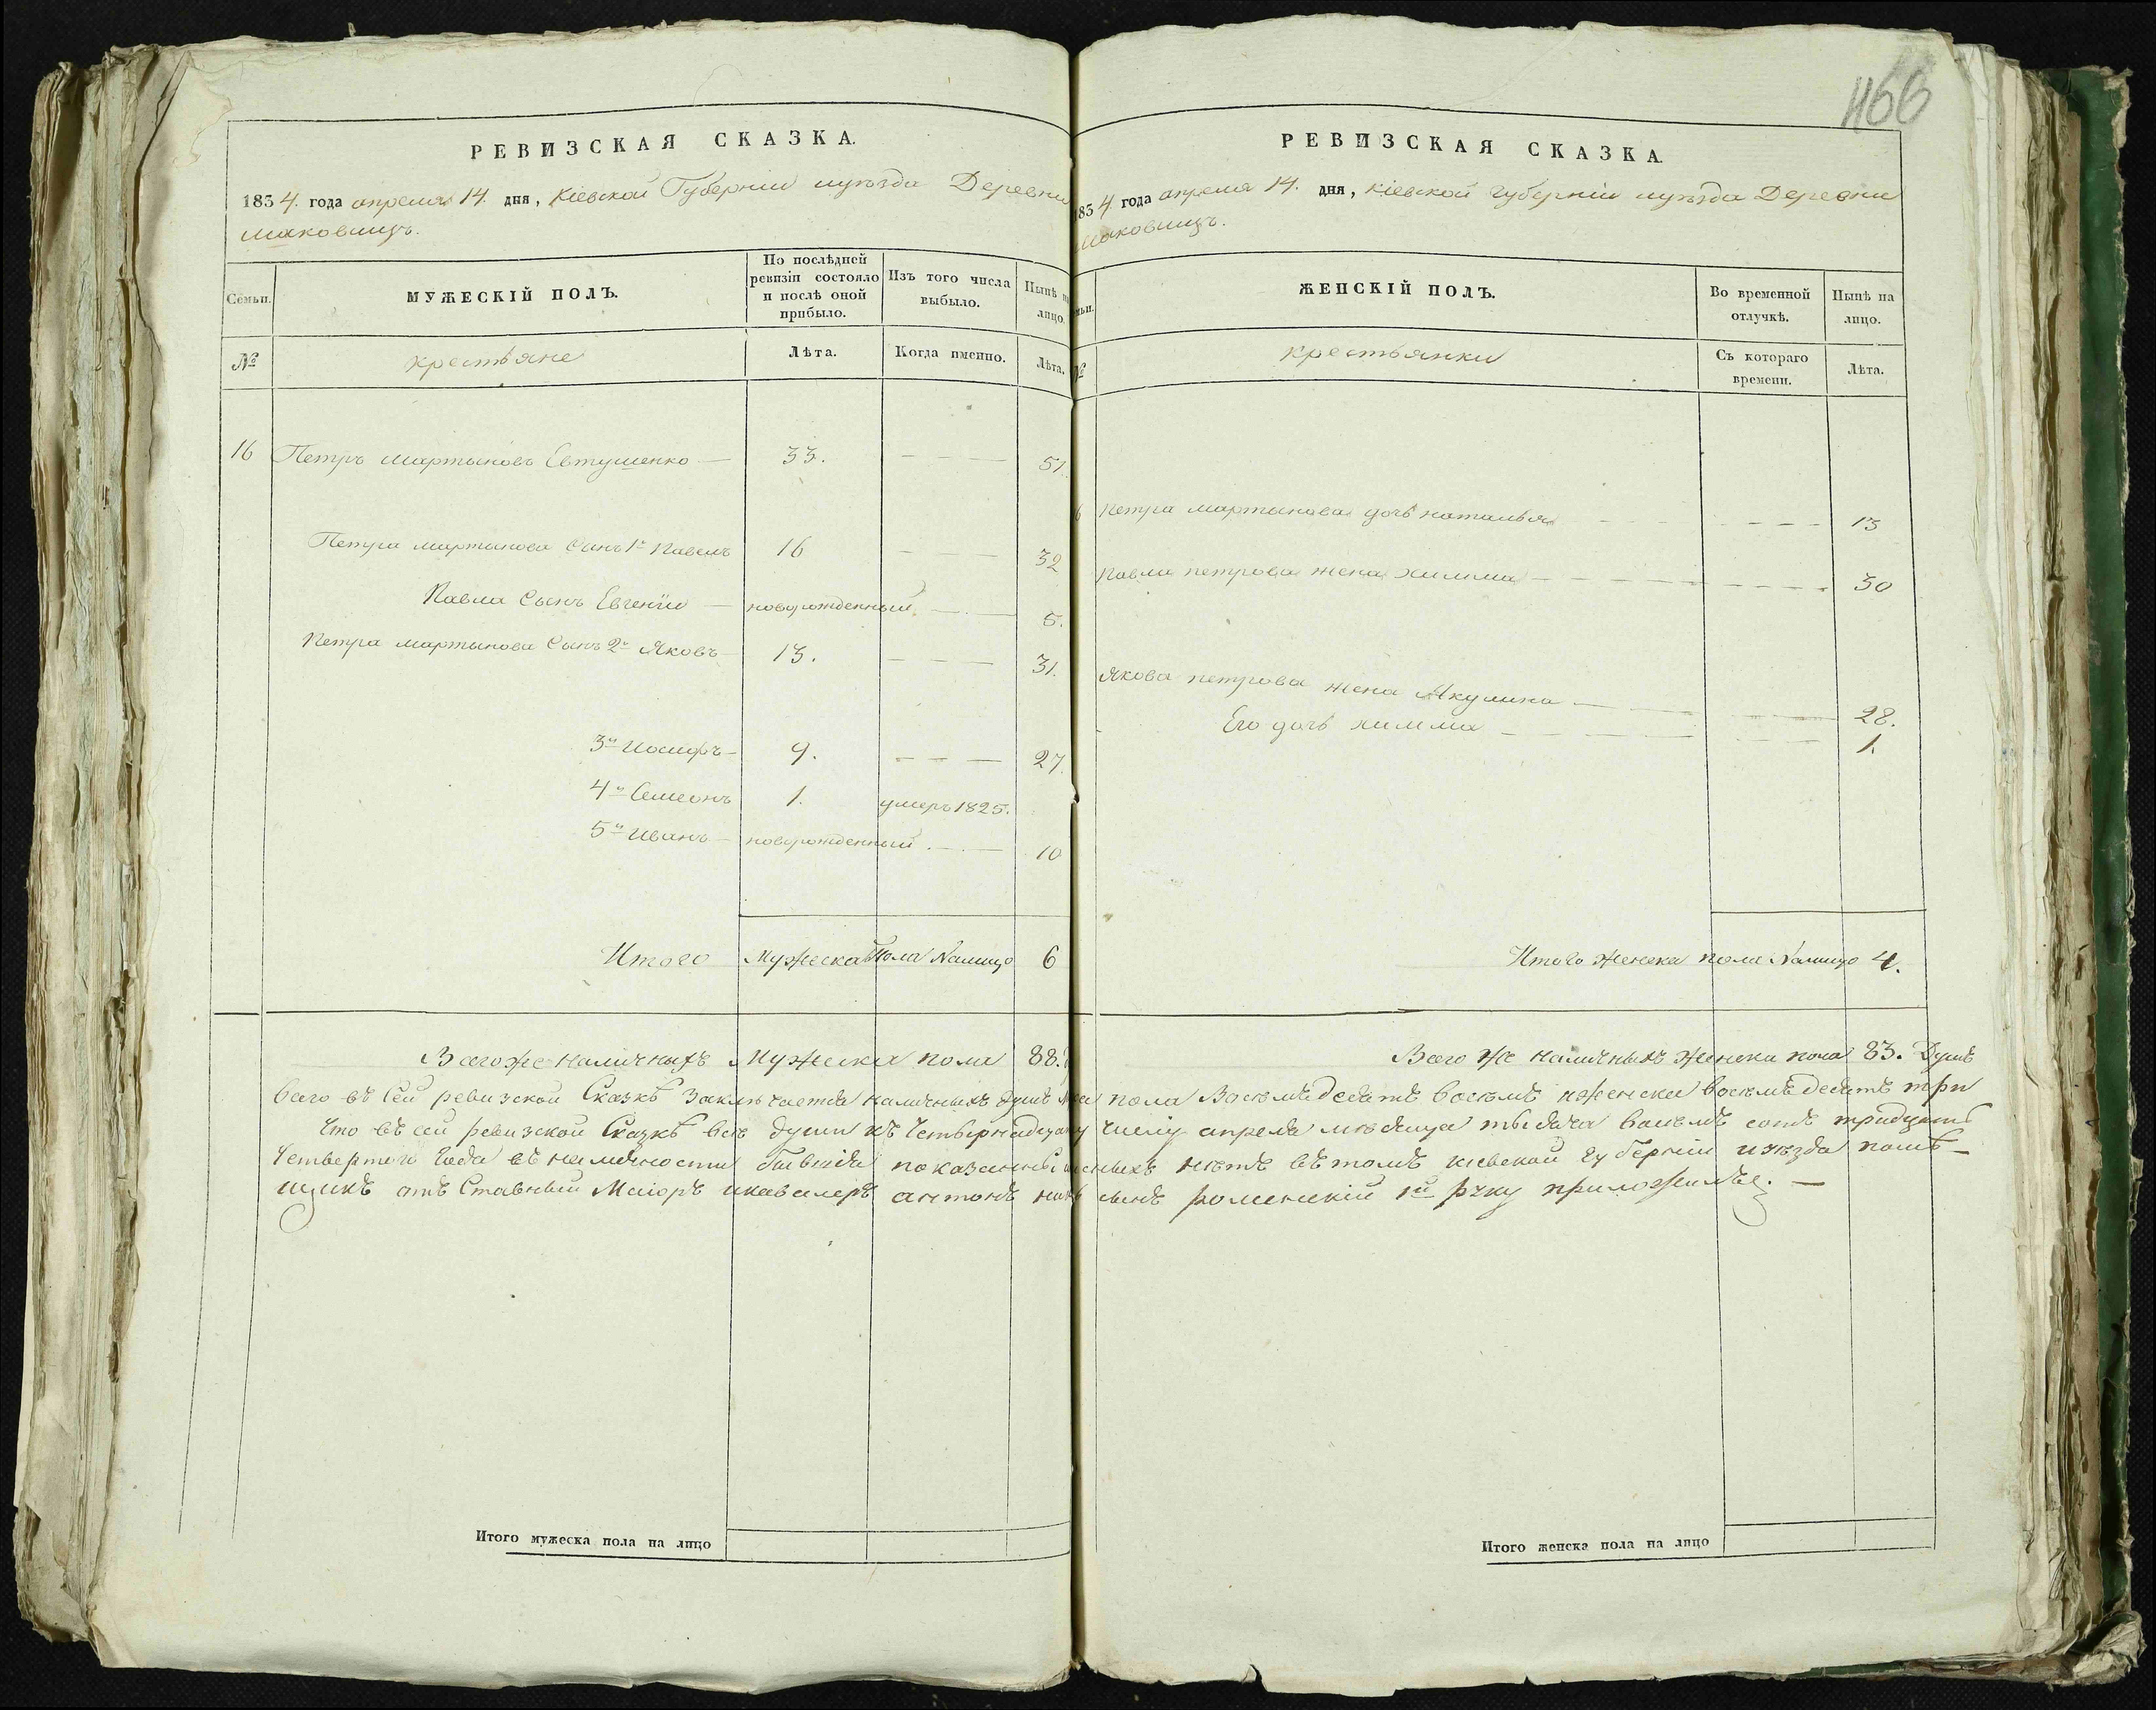 466
РЕВИЗСКАЯ СКАЗКА.
1834. года апреля 14. дня, Кіевской Губерніи иуѣзда Деревни
Маковищъ.
Семьи.
МУЖЕСКІЙ ПОЛЪ.
По послѣдней ревизіи состояло и послѣ оной прибыло.
Изъ того числа выбыло.
Нынѣ на лицо.
№
крестьяне
Лѣта.
Когда именно.
Лѣта.
16 Петръ мартыновъ Евтушенко — 33. — — — 51.
Петра мартынова Сынъ 1й Павелъ 16 — — — 32
Павла Сынъ Евгений — новорожденный. — — 5.
Петра мартынова Сынъ 2й Яковъ — 13. — — — 31.
3й Иосифъ — 9. — — — 27.
4й Семеонъ 1. умеръ 1825.
5й Иванъ — новорожденный. — — 10
Итого Мужеска Пола Налицо 6
РЕВИЗСКАЯ СКАЗКА.
1834 года апреля 14. дня, Кіевской губерніи иуѣзда Деревни
Маковищъ.
Семьи.
ЖЕНСКІЙ ПОЛЪ.
Во временной отлучкѣ.
Нынѣ на лицо.
№
крестьянки
Съ котораго времени.
Лѣта.
6 Петра мартынова дочь наталья — — — — 13
Павла петрова жена химма — — — — 30
Якова петрова жена Акулина — — — 28.
Его дочь химма — — — — 1.
Итого Женска пола Налицо 4.
Всего же наличныхъ Мужеска пола 88.
Всего же наличныхъ женска пола 83. Душъ
всего въ сей ревизской Сказкѣ Заключается наличныхъ душъ пола Восемьдесятъ восемь иженска восемьдесятъ три
Что въ сей ревизской Сказкѣ всѣ души къ Четырнадцатому числу апреля мѣсяца тысяча восемь сотъ тридцать
Четвертого года въ наличности бывшія показанны нѣтъ въ томъ кіевской губерніи иуѣзда помѣ-
щикъ отъ Ставный Маіоръ икавалеръ антонъ сынъ роменскій руку приложилъ. —
Итого мужеска пола на лицо
Итого женска пола на лицо